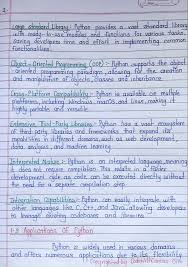 Large standard library :- Python provides a vast standard library
with ready-to-use modules and functions for various tasks,
saving developers time and effort in implementing common
functionalities.
Object-Oriented Programming (OOP) :- Python supports the object
-oriented programming paradigm, allowing for the creation
and manipulation of objects, classes and inheritance.
Cross-Platform Compatibility :- Python is available on multiple
platforms, including Windows, macOS and Linux, making it
highly portable and versatile.
Extensive Third-Party Libraries :- Python has a vast ecosystem
of third-party libraries and frameworks that expand its
capabilities in different domains, such as web development,
data analysis, and machine learning.
Interpreted Nature :- Python is an interpreted language, meaning
it does not require compilation. This results in a faster
development cycle as code can be executed directly without
the need for a separate compilation step.
Integration Capabilities :- Python can easily integrate with
other languages like C, C++ and Java, allowing developers
to leverage existing codebases and libraries.
1.3 Applications Of Python
Python is widely used in various domains
and offers numerous applications due to its flexibility